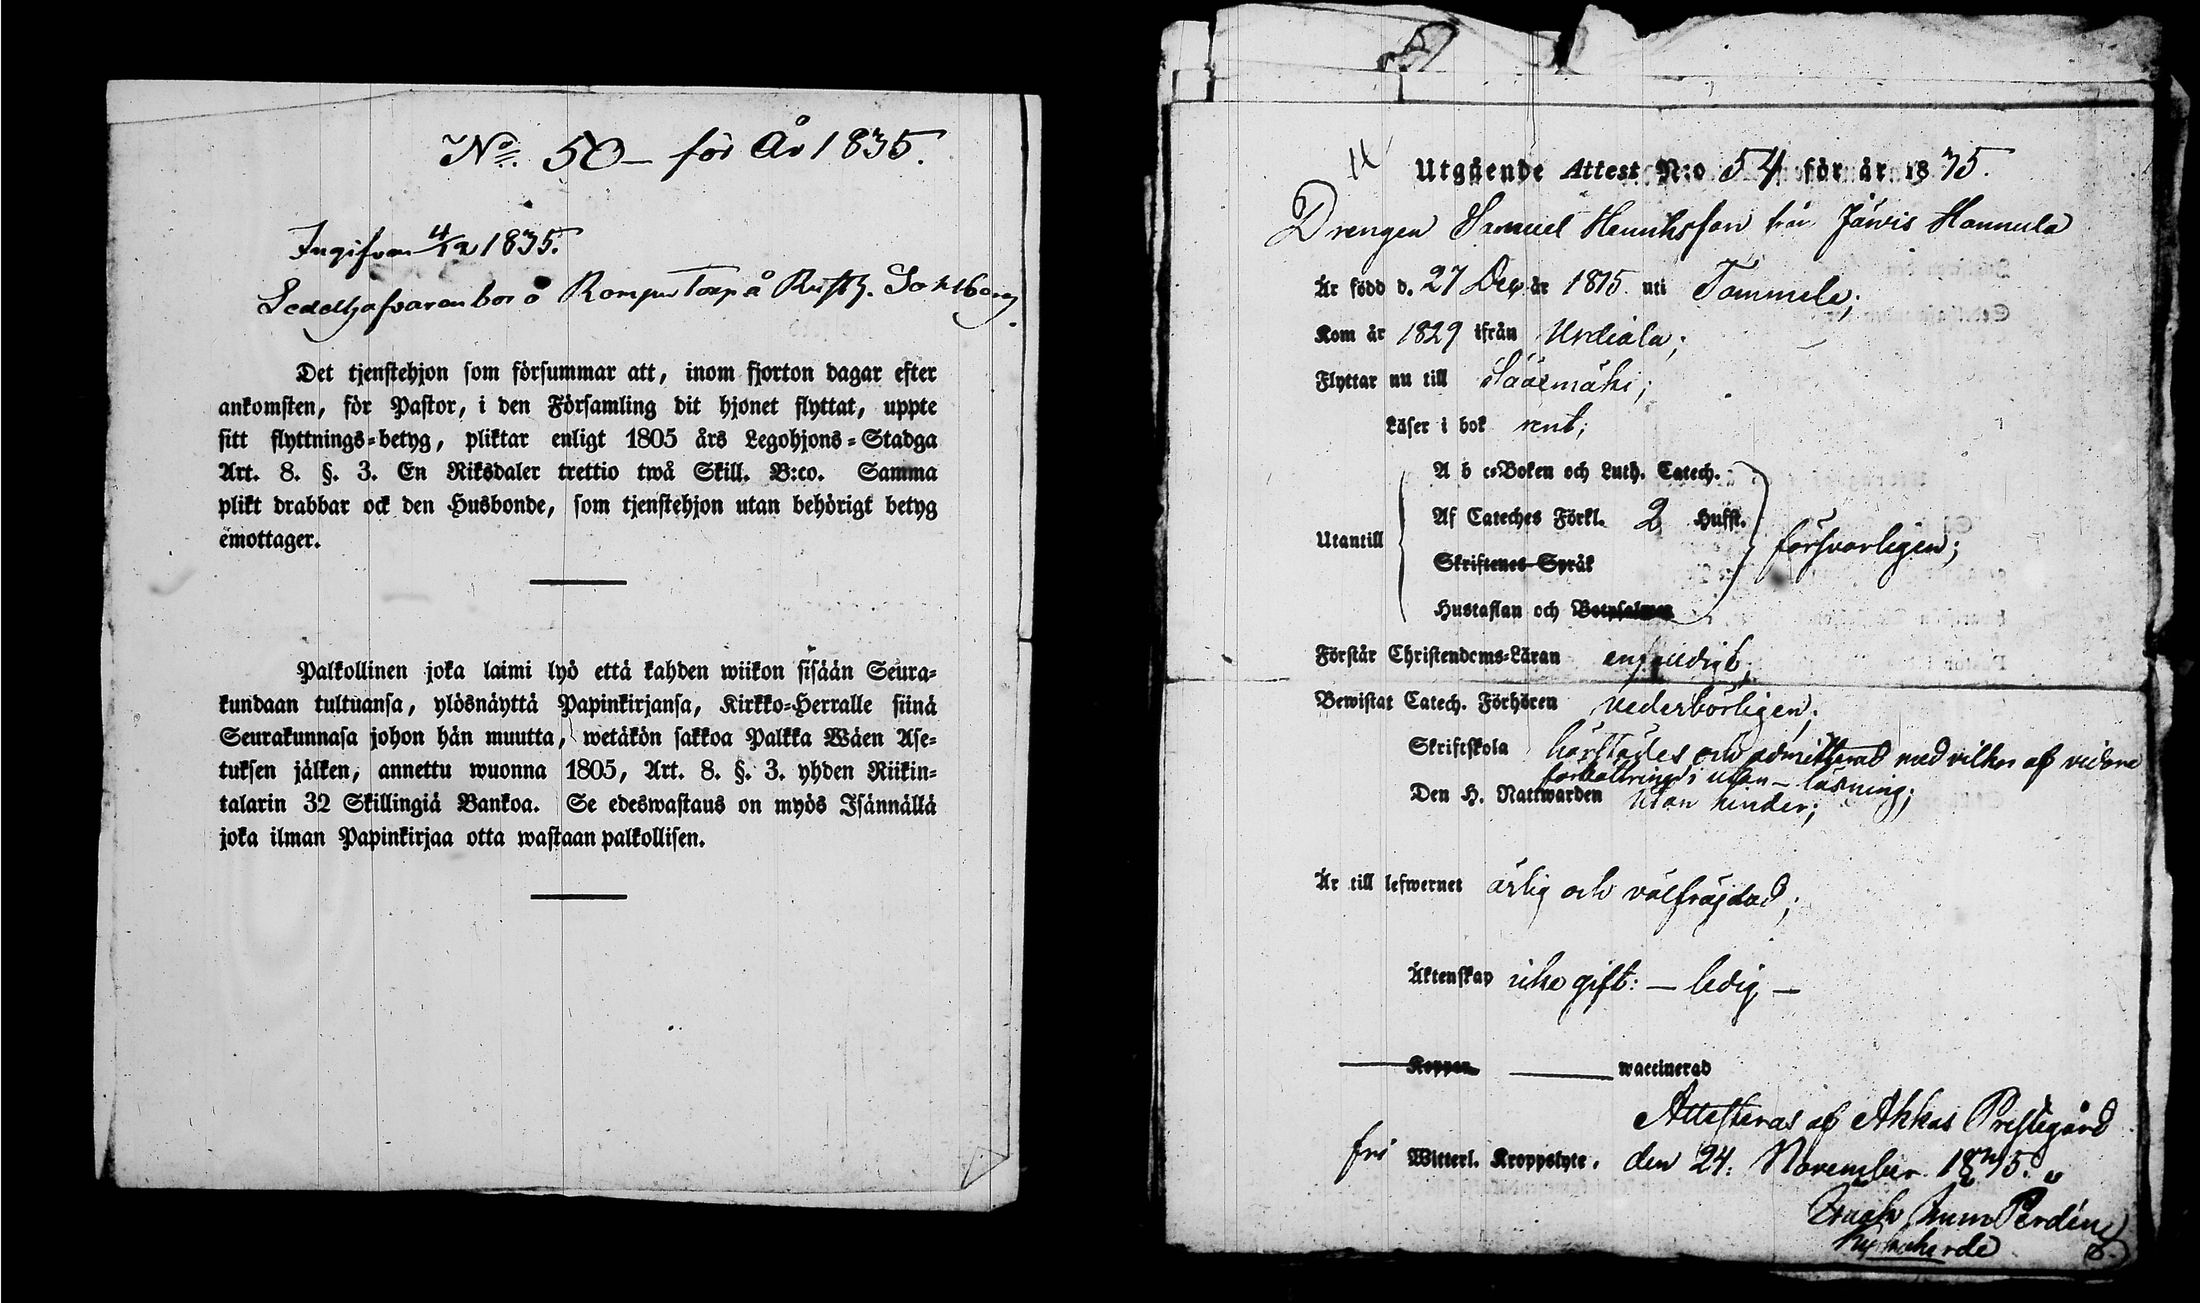 No. 50 – för År 1835.
Ingifven 4/12 1835.
Sedelhafvaren bor å Rompu Torp å Rusth. Sohlberg.
Det tjenstehjon som försummar att, inom fjorton dagar efter
ankomsten, för Pastor, i den Församling dit hjonet flyttat, uppte
sitt flyttnings=betyg, pliktar enligt 1805 års Legohjons=Stadga
Art. 8. §. 3. En Riksdaler trettio twå Skill. B:co. Samma
plikt drabbar ock den Husbonde, som tjenstehjon utan behörigt betyg
emottager.
Palkollinen joka laimi lyö että kahden wiikon sisään Seura=
kundaan tultuansa, ylösnäyttä Papinkirjansa, Kirkko=Herralle siinä
Seurakunnasa johon hän muutta, wetäkön sakkoa Palkka Wäen Ase=
tuksen jälken, annettu wuonna 1805, Art. 8. §. 3. yhden Riikin=
talarin 32 Skillingiä Bankoa. Se edeswastaus on myös Isännällä
joka ilman Papinkirjaa otta wastaan palkollisen.
Utgående Attest N:o 54 för år 1835.
Drengen Samuel Henrihsson från Järvis Hannula
Är född d. 27 Dec är 1815 uti Tammela;
Kom är 1829 ifrån Urdiala;
Flyttar nu till Sääxmäki;
Läser i bok rent;
A b c=Boken och Luth. Catech.
Af Cateches Förkl. 2 Hufst.
Utantill försvarligen;
Skriftenes Språk
Hustaflan och Botpsalmer
Förstår Christendoms=Läran enfaldigt;
Bewistat Catech. Förhören vederbörligen;
Skriftskola härstädes och admitterad med vilkor af vidare
förbättring i utan-läsning;
Den H. Nattwarden utan hinder;
Är till lefwernet ärlig och välfräjdad;
Äktenskap icke gift: – ledig –
Koppor waccinerad
Attesteras af Akkas Prestegård
fri Witterl. Kroppslyte. den 24. November 1835.